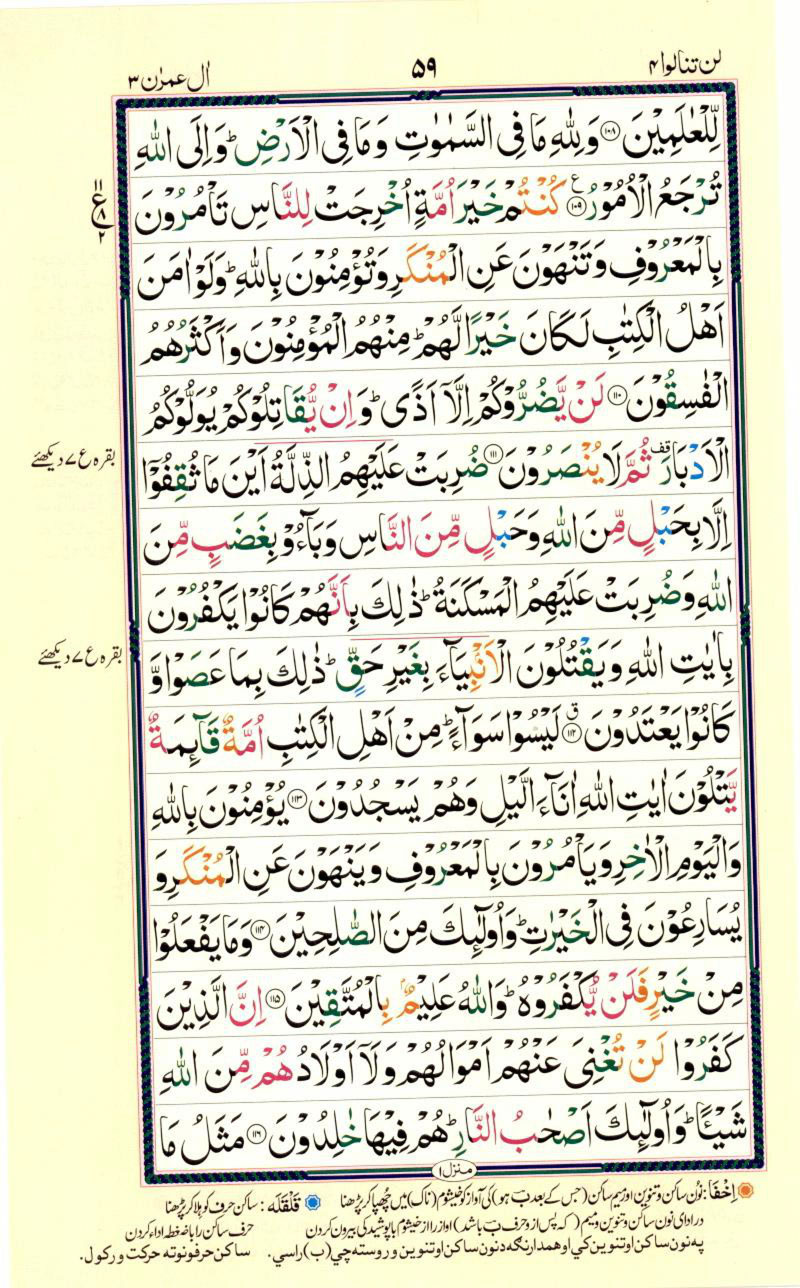 لن تنالوا ۴
۵۹
اٰل عمرٰن ۳
لِّلْعٰلَمِيْنَ ۝۱۰۸ وَلِلّٰهِ مَا فِى السَّمٰوٰتِ وَمَا فِى الْاَرْضِ ؕ وَاِلَى اللّٰهِ
تُرْجَعُ الْاُمُوْرُ ۝۱۰۹ ع كُنْتُمْ خَيْرَ اُمَّةٍ اُخْرِجَتْ لِلنَّاسِ تَاْمُرُوْنَ
۱۱
ع ۸
۲
بِالْمَعْرُوْفِ وَتَنْهَوْنَ عَنِ الْمُنْكَرِ وَتُؤْمِنُوْنَ بِاللّٰهِ ؕ وَلَوْ اٰمَنَ
اَهْلُ الْكِتٰبِ لَكَانَ خَيْرًا لَّهُمْ ؕ مِنْهُمُ الْمُؤْمِنُوْنَ وَاَكْثَرُهُمُ
الْفٰسِقُوْنَ ۝۱۱۰ لَنْ يَّضُرُّوْكُمْ اِلَّاۤ اَذًى ؕ وَاِنْ يُّقَاتِلُوْكُمْ يُوَلُّوْكُمُ
الْاَدْبَارَ قف ثُمَّ لَا يُنْصَرُوْنَ ۝۱۱۱ ضُرِبَتْ عَلَيْهِمُ الذِّلَّةُ اَيْنَ مَا ثُقِفُوْۤا
بقرہ ع ۷ دیکھئے
اِلَّا بِحَبْلٍ مِّنَ اللّٰهِ وَحَبْلٍ مِّنَ النَّاسِ وَبَآءُوْ بِغَضَبٍ مِّنَ
اللّٰهِ وَضُرِبَتْ عَلَيْهِمُ الْمَسْكَنَةُ ؕ ذٰلِكَ بِاَنَّهُمْ كَانُوْا يَكْفُرُوْنَ
بِاٰيٰتِ اللّٰهِ وَيَقْتُلُوْنَ الْاَنْۢبِيَآءَ بِغَيْرِ حَقٍّ ؕ ذٰلِكَ بِمَا عَصَوْا وَّ
بقرہ ع ۷ دیکھئے
كَانُوْا يَعْتَدُوْنَ ۝۱۱۲ ق لَيْسُوْا سَوَآءً ؕ مِنْ اَهْلِ الْكِتٰبِ اُمَّةٌ قَآئِمَةٌ
يَّتْلُوْنَ اٰيٰتِ اللّٰهِ اٰنَآءَ الَّيْلِ وَهُمْ يَسْجُدُوْنَ ۝۱۱۳ يُؤْمِنُوْنَ بِاللّٰهِ
وَالْيَوْمِ الْاٰخِرِ وَيَاْمُرُوْنَ بِالْمَعْرُوْفِ وَيَنْهَوْنَ عَنِ الْمُنْكَرِ وَ
يُسَارِعُوْنَ فِى الْخَيْرٰتِ ؕ وَاُولٰٓئِكَ مِنَ الصّٰلِحِيْنَ ۝۱۱۴ وَمَا يَفْعَلُوْا
مِنْ خَيْرٍ فَلَنْ يُّكْفَرُوْهُ ؕ وَاللّٰهُ عَلِيْمٌۢ بِالْمُتَّقِيْنَ ۝۱۱۵ اِنَّ الَّذِيْنَ
كَفَرُوْا لَنْ تُغْنِىَ عَنْهُمْ اَمْوَالُهُمْ وَلَاۤ اَوْلَادُهُمْ مِّنَ اللّٰهِ
شَيْـًٔا ؕ وَاُولٰٓئِكَ اَصْحٰبُ النَّارِ ؕ هُمْ فِيْهَا خٰلِدُوْنَ ۝۱۱۶ مَثَلُ مَا
منزل ۱
اِخْفَا: نون ساکن و تنوین اور میم ساکن (جس کے بعد ب ہو) کی آواز کو خیشوم (ناک) میں چھپا کر پڑھنا قَلْقَلَه: ساکن حرف کو ہلا کر پڑھنا
در ادای نون ساکن و تنوین و میم (که پس از و حرف ب باشد) آواز را از خیشوم با پوشیدگی بیرون کردن حرف ساکن را باضغطه ادا کردن
په نون ساکن او تنوین کي او همدارنګه د نون ساکن او تنوین و روسته چي (ب) راسي. ساکن حرفونو ته حرکت ورکول.